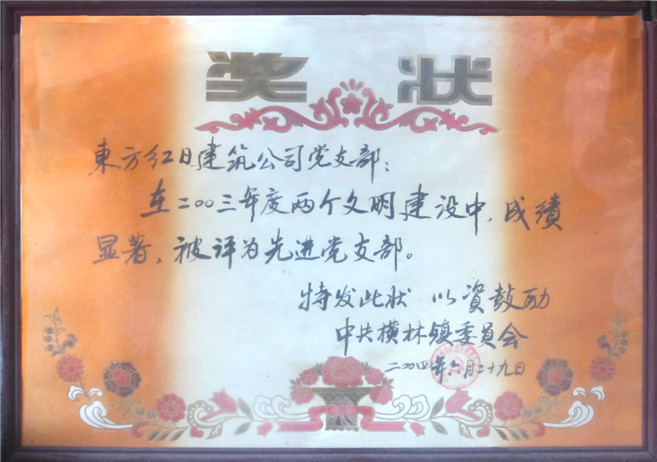 奖状
東方红日建筑公司党支部：
在二〇〇三年度两个文明建设中，成绩
显著，被评为先进党支部。
特发此状 以资鼓励
中共横林镇委員会
二〇〇四年六月二十九日